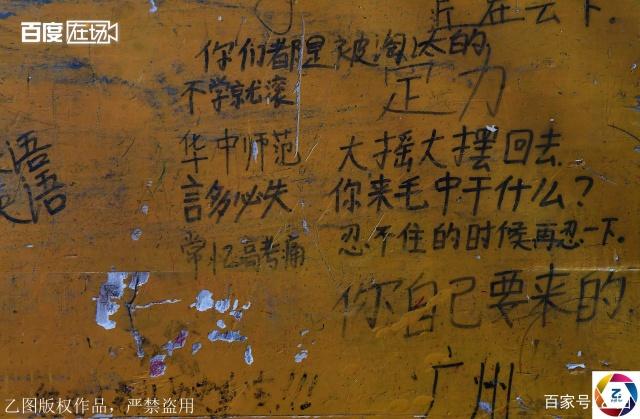 百度在场
你们都是被淘汰的
不学就滚
定力
华中师范
大摇大摆回去
言多必失
你来毛中干什么?
常忆高考痛
忍不住的时候再忍一下.
你自己要来的.
广州
!!!
乙图版权作品，严禁盗用
百家号
乙